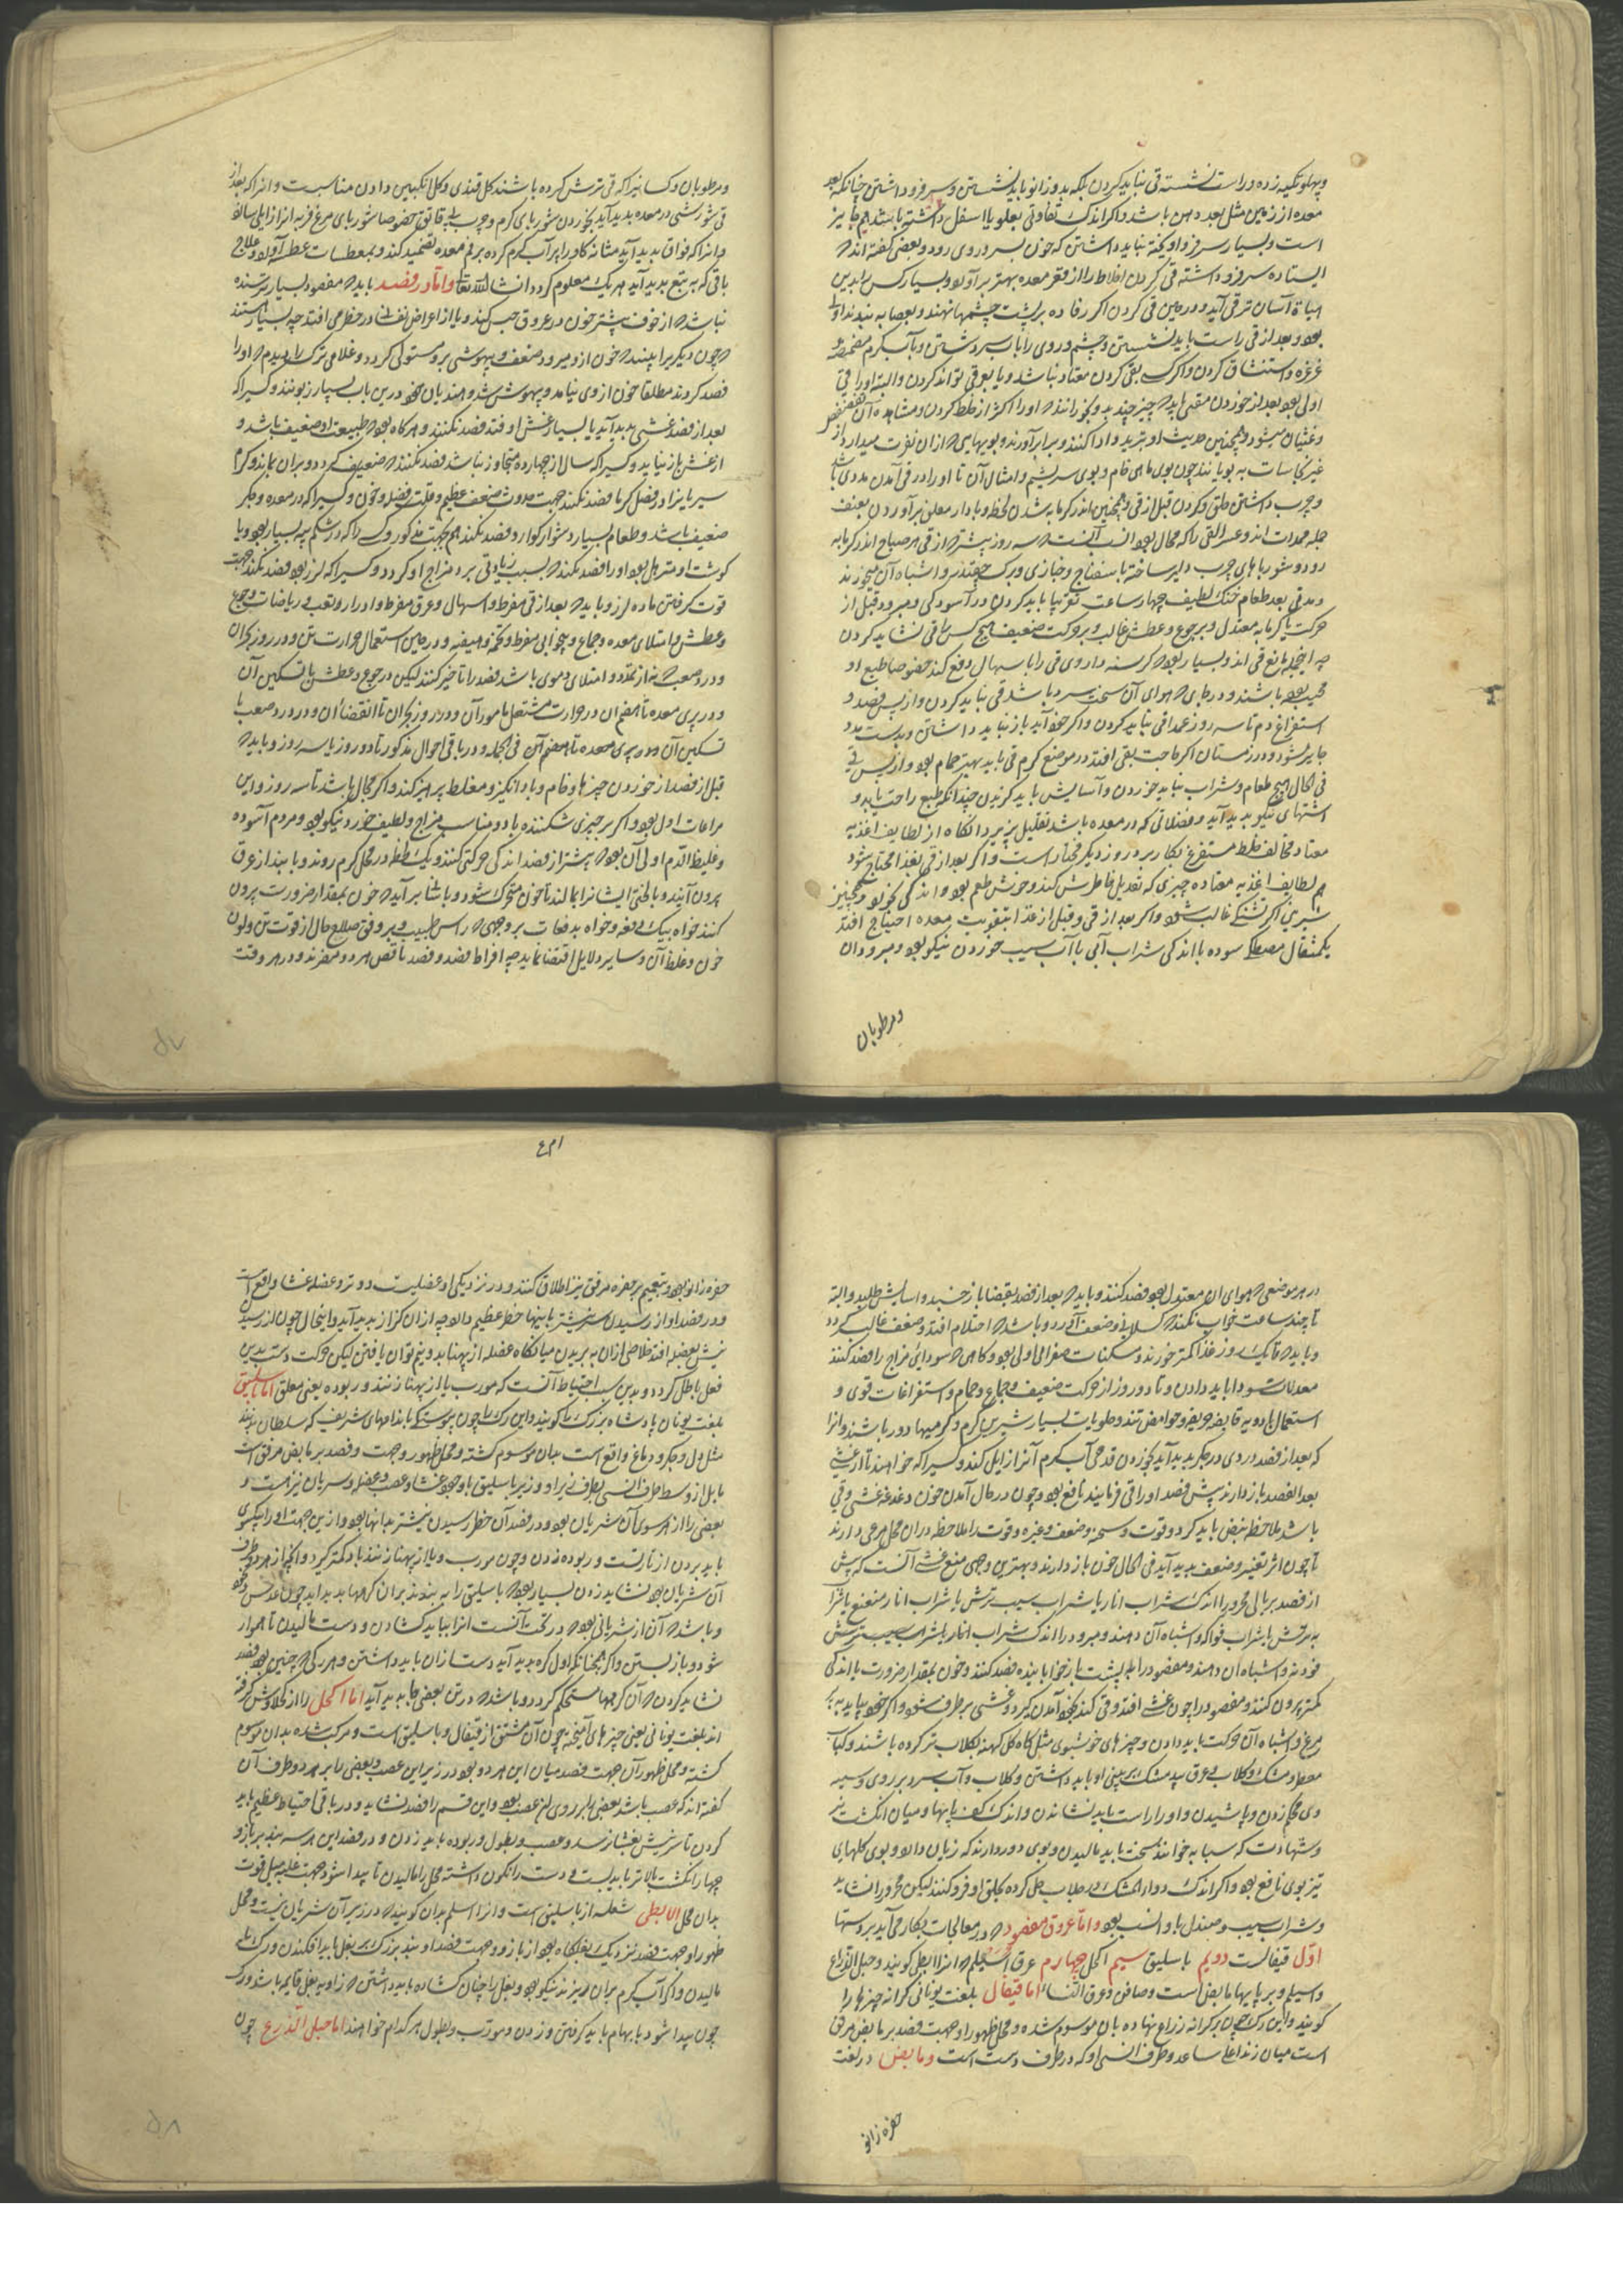 وپهلو تکیه زده وراست نشسته قی نباید کردن بلکه بدو زانو باید نشستن وسر فرو داشتن چنانکه بعد
معده از زمین مثل بعد دهن باشد واکر اندک تفاوتی بعلو یا اسفل داشته باشد هم جایز
است وبسیار سر فرو اویخته نباید داشتن که خون بسر وروی رود وبعضی کفته اند که
ایستاده سر فرو داشته قی کردن اخلاط را از قعر معده بهتر بر آورد وبسیار کس را بدین
هیاة آسان تر قی آید ودر حین قی کردن اکر رفاده بر پشت چشمها نهند وبعصابه ببندند اولی
بود وبعد از قی راست باید نشستن وچشم وروی را باب سرد شستن وبآب کرم مضمضه و
غرغره واستنشاق کردن واکر کسی بقی کردن معتاد نباشد ویا بعوقی تواند کردن والبته اورا قی
اولی بود بعد از خوردن مقیی باید که چیز چند بد وبخورانند که اورا اکثر از خلط کردن ومشاهده آن
وغثیان میشود وهمچنین حدیث او بتر ید وادا کنند وبرابر آورند وبویهایی که از ان نفرت میدارد از
غیر نجاسات به بویانند چون بوی ماهی خام وبوی سریشم وامثال آن تا اورا در قی آمدن مددی باشد
وچرب داشتن حلق وکردن قبل از قی وهمچنین اندر کرمابه شدن لحظه وبادار معلق بر آوردن بعنف
جمله ممدات اند وعسر القی را که مجال بود انسب آنست که سه روز پیشتر از قی هر صباح اندر کرمابه
رود وشورباهای چرب دلپر ساخته با سفناج وخبازی وبرک چغندر واشباه آن میخورند
ومدتی بعد طعام خنک لطیف چهار ساعت تقریبا باید کردن ودر آسودکی ومبرود قبل از
حرکت یا کرمابه معتدل وبر جوع وعطش غالب وبر حرکت ضعیف هیچ کس را قی نشاید کردن
چه اینجمله مانع قی اند وبسیار بود که کرسنه داروی قی را باسهال دفع کند خصوصا طبع او
مجیب بوده باشند ودر جایی که هوای آن سخت سرد باشد قی نباید کردن واز پس فصد و
استفراغ دم تا سه روز عمدا قی نباید کردن واکر خود آید باز نباید داشتن وبدست مدد
جایز شود ودر زمستان اکر حاجت بقی افتد در موضع کرم قی باید بهتر حمام بود واز پس قی
فی الحال هیچ طعام وشراب نباید خوردن وآسایش باید کزیدن چندانکه طبع راحت یابد و
اشتهای نیکو بدید آید وفضلاتی که در معده باشد تحلیل پذیرد انکاه از لطایف اغذیه
معتاد مخالف خلط مستفرغ بکار برد وروز دیکر مختار است واکر بعد از قی بغذا محتاج شود
هم لطایف اغذیه معتاده چیزی که تعدیل خاطرش کند وخوش طعم بود واندکی بخورد وهمچنین
شربتی اکر تشنکی غالب شود واکر بعد از قی وقبل از غذا بتقویت معده احتیاج افتد
یکمثقال مصطکی سوده با اندکی شراب آبی یا آب سیب خوردن نیکو بود ومبرودان
ومرطوبان
ومرطوبان وکسانیرا که قی ترش کرده باشند کل قندی وکل انکبین دادن مناسبست وانرا که بعد از
قی شورشی در معده بدید آید بخوردن شوربای کرم وچرب بی قانون خصوصا شوربای مرغ فربه انرا زایل سازد
وانرا که فواق بدید آید مثانه کاو را پر آب کرم کرده بر فم معده تضمید کنند وبمعطسات عطسه آورند وعلاج
باقی که به تبع بدید آید هر یک معلوم کردد انشا الله تعا واما در فصد باید که مفصود بسیار ترسنده
نباشد که از خوف بیشتر خون در عروق حبس کند ویا از اعراض نفسانی در خطر می افتد چه بسیار هستند
که چون دیکری را ببینند که خون از ومیرود ضعف وبیهوشی برو مستولی کردد وغلامی ترک را دیدم که اورا
فصد کردند مطلقا خون از وی نیامد وبیهوش شد وهندیان خود درین باب بسیار زبونند وکسیرا که
بعد از فصد غشی بدید آید یا بسیار غش او فتد فصد نکنند وهرکاه بود که طبیعت او ضعیف باشد و
از غش باز نیاید وکسیرا که سال از چهارده متجاوز نباشد فصد نکنند که ضعیف کردد وپیران بماند وکرم
سیریا نرا در فصل کرما فصد نکنند جهت حدوث ضعف عظیم وقلت فضله وخون وکسیرا که در معده وجکر
ضعیف باشد وطعام بسیار دشوار کوارد فصد نکنند هم بجهت مذکور وکسی را که در شکم پیه بسیار بود ویا
کوشت او مترهل بود اورا فصد نکنند که بسبب زیادتی برد مزاج او کردد وکسیرا که لرز بود فصد نکنند جهت
قوت کرفتن ماده لرز وباید که بعد از قی مفرط واسهال وعرق مفرط وادرار وتعب وریاضات وجوع
وعطش وامتلای معده وجماع وبیخوابی مفرط وتخمه وهیضه ودر حین استعمال حرارت تن ودر روز بحران
ودر دردصعب که نه از تمدد وامتلای دموی باشد فصد را تاخیر کنند لیکن در جوع وعطش با تسکین آن
ودر پری معده تا هضم ان در حرارت مشتعل تا مور آن ودر روز بحران تا انقضاء ان ودر درد صعب تا
تسکین آن ودر پری معده تا هضم آن فی الجمله ودر باقی احوال مذکور تا دو روز یا سه روز وباید که
قبل از فصد از خوردن چیزها وخام وباد انکیز ومغلظ پرهیز کنند واکر مجال باشد تا سه روز واین
مراعات اولی بود واکر بر چیزی شکننده باد ومناسب مزاج ولطیف خورد نیکو بود ومردم آسوده
وغلیظ الدم اولی آن بود که پیشتر از فصد اندکی حرکتی کنند ویک لحظه در محل کرم روند وبا بند از عرق
بیرون آیند وبالختی ایشانرا بمالند تا خون متحرک شود وباشنا بر آید که خون بمقدار ضرورت بیرون
کنند خواه بیک دفعه وخواه بدفعات بر وجهی که راس طبیب وبر وفق صلاح حال از قوت تن ولون
خون وغلظ آن وسایر دلایل اقتضا نماید چه افراط فصد وفصد ناقص هر دو مضرند ودر هر وقت
۵۷
در هر موضعی که هوای ان معتدل بود فصد کنند وباید که بعد از فصد بقفا باز خسبد واسایش طلبد والبته
تا چند ساعت خواب نکند که کسلانی وضعف آورد وباشد که احتلام افتد وضعف غالب کردد
وباید که تا یک روز غذا کمتر خورند ومسکنات صفرا می اولی بود وکاهی که سوداوی مزاج را فصد کنند
معدلات سودا باید دادن وتا دو روز از حرکت ضعیف وجماع وحمام واستفراغات قوی و
استعمال ادویه قابضه حریفه وحوامض تند وحلویات بسیار شیرین کرم وکرمیها دور باشند وانرا
که بعد از فصد دردی در جکر بدید آید بخوردن قدحی آب کرم آنرا زایل کند وکسیرا که خواهند تا از غشی
بعد الفصد باز دارند پیش فصد اورا قی فرمایند نافع بود وچون در حال آمدن خون دغدغه غشی وقی
باشد ملاحظه نبض باید کرد وقوت وسحنه وضعف وغیره وقوت را ملاحظه در ان محل مرعی دارند
تا چون اثر تغییر وضعف بدید آید فی الحال خون باز دارند وبهترین وجهی منع غشی آنست که پیش
از فصد بر بالی محرور را اندک شراب انار یا شراب سیب ترش یا شراب انار منعنع یا شراب
به ترش یا شراب فواکه واشباه آن دهند ومبرود را اندک شراب انار یا شراب سیب ترش
خورند واشباه ان دهند ومفصود را به پشت باز خوابانیده فصد کنند وخون بمقدار ضرورت با اندکی
کمتر بیرون کنند ومفصود را چون غشی افتد وقی کند بخود آمدن کیرد وغشی بر طرف شود واکر بخود نیاید به پر
مرغ واشباه آن حرکت باید دادن وچیزهای خوشبوی مثل کاه کل کهنه بکلاب تر کرده باشند وکباب
معطر ومشک وکلاب وعرق بید مشک بر بینی او باید داشتن وکلاب وآب سرد بر روی وسینه
وی محکم زدن وپاشیدن واورا راست باید نشاندن واندک کف پایها ومیان انکشت نر
وشهادت که سبابه خوانند سخت باید مالیدن وبوی دود دارند که زیان دارد وبوی کلهای
تیز بوی نافع بود واکر اندک دواء المشک در جلاب حل کرده بحلق او فرو کنند لیکن محرور را نشاید
وشراب سیب وصندل باو انسب بود واما عروق مفصود که در معالجات بکار می آید بر دستها
اول قیفالست دویم باسلیق سیم اکحل چهارم عرق اسیلم که انرا ابطی کویند وحبل الذراع
واسیلم وبر پایها مابض است وصافن وعرق النساء اما قیفال بلغت یونانی کرانه چیزها را
کویند واین رک چون بر کرانه زراع نهاده بان موسوم شده ومحل ظهور او جهت فصد بر مابض مرفق
است میان زند اعلی ساعد وطرف انسی او که در طرف دست است ومابض در لغت
حفره زانو
۵۸
حفره زانو بود وبتعمیم بر حفره مرفق نیز اطلاق کنند ودر نزدیکی او عضلیست دو تر وعضله غشا واقع است
ودر فصد او از رسیدن سر نیشتر باینها خطر عظیم دارد چه از ان کزاز بدید آید واینحال چون از رسیدن
نیش بعضله افتد خلاصی ازان به بریدن میانکاه عضله از پهنا بدو نیم توان یافتن لیکن حرکت دست بدین
فعل باطل کردد وبدین سبب احتیاط آنست که مورب یا از پهنا زنند وربوده یعنی معلق اما باسلیق
بلغت یونان پادشاه بزرک را کویند واین رک را چون پیوستکی باندامهای شریف که سلطان بدنند
مثل دل وجکر ودماغ واقع است بدان موسوم کشته ومحل ظهور وجهت فصد بر مابض مرفق است
مایل از وسط طرف انسی بطرف زیر او وزیر باسلیق با وجود غشاء وعصب وعضله وسریان نیز هست و
بعضی را از هر سوی آن شریان بود ودر فصد آن خطر رسیدن نیشتر بدانها بود وازین جهت اورا نیکوی
باید بردن از نار تست وربوده زدن وچون مورب ویا از پهنا زنند باد کمتر کیرد وانچه از هر دو طرف
آن شریان بود نشاید زدن بسیار بود که باسلیق را به بندند بران کرهها بدید اید چون عدس وخود
وباشد که آن از شریانی بود که در تحت آنست انرا بباید کشادن ودست مالیدن تا هموار
شود وباز بستن واکر همچنانکه اول کره بدید آید دست ازان باید داشتن وهر رکی که چنین بود فصد
نشاید کردن که آن کرهها مستحکم کردد وباشد که در تن بعضی جا بدید آید اما اکحل را از کلاوش کرفته
اند بلغت یونانی یعنی چیزهای آمیخته چون آن مشتق از قیفال وباسلیق است ومرکب شده بدان موسوم
کشته ومحل ظهور آن جهت فصد میان این هر دو بود ودر زیر این عصب وبعضی را بر هر دو طرف آن
کفته اند که عصب باشد بعضی را بر روی ان عصب بود واین قسم را فصد نشاید ودر باقی احتیاط عظیم باید
کردن تا سر نیش بغشا نرسد وعصب وبطول وربوده باید زدن ودر فصد این هر سه بند بر بازو
چهار انکشت بالاتر باید بست ودست را نکون داشته محل را مالیدن تا پیدا شود جهت غلبه میل قوت
بدان محل الا بطی شعله از باسلیق است وانرا اسلم بدان کویند که در زیر آن شریان نیست ومحل
ظهور او جهت فصد نزدیک بغلکاه بود از بازو وجهت فصد او بند بزرک بر بغل باید افکندن ورک را بسی
مالیدن واکر آب کرم بران ریزند نیکو بود وبغل را چنان کشاده باید داشتن که زاویه بغل قایمه باشد ورک
چون پیدا شود بابهام باید کرفتن وزدن ومورب وبطول هر کدام خواهند اما حبل الذرع چون